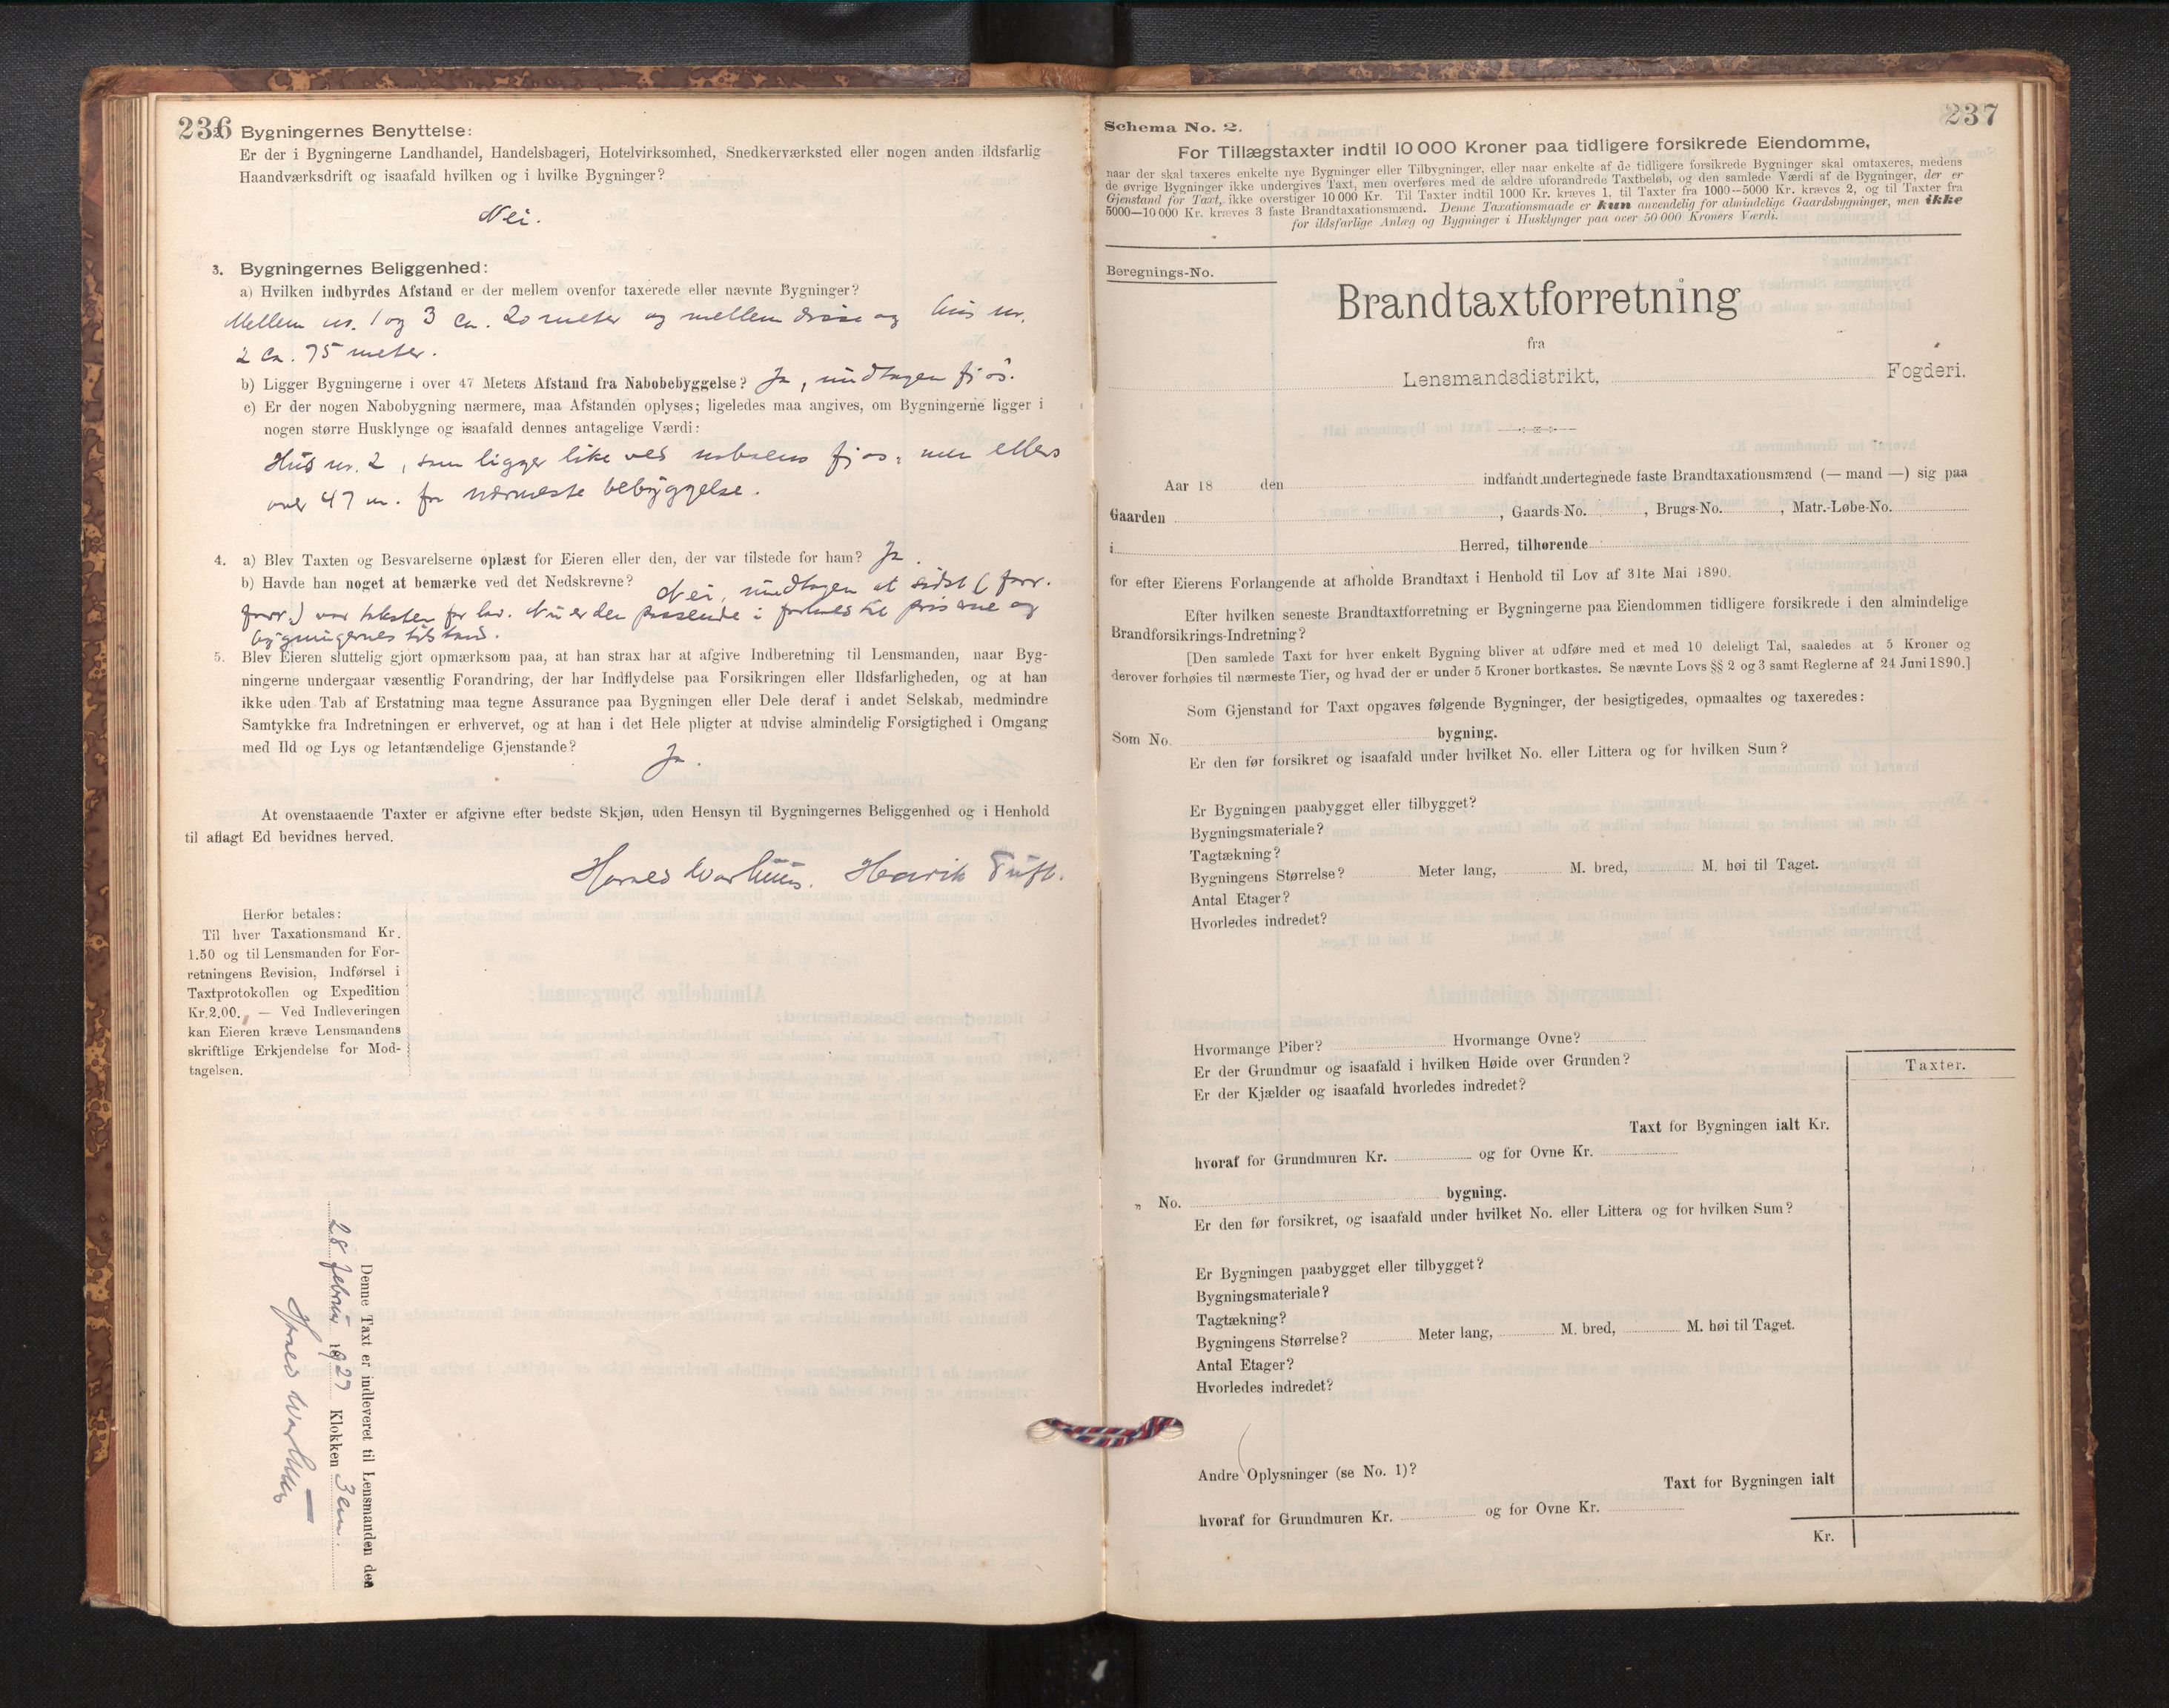 236
2. Bygningernes Benyttelse:
Er der i Bygningerne Landhandel, Handelsbageri, Hotelvirksomhed, Snedkerværksted eller nogen anden ildsfarlig
Haandværksdrift og isaafald hvilken og i hvilke Bygninger?
Nei.
3. Bygningernes Beliggenhed:
a) Hvilken indbyrdes Afstand er der mellem ovenfor taxerede eller nævnte Bygninger?
Mellem nr. 1 og 3 ca. 20 meter og mellem disse og hus nr.
2 ca. 75 meter.
b) Ligger Bygningerne i over 47 Meters Afstand fra Nabobebyggelse? Ja, undtagen fjøs.
c) Er der nogen Nabobygning nærmere, maa Afstanden oplyses; ligeledes maa angives, om Bygningerne ligger i
nogen større Husklynge og isaafald dennes antagelige Værdi:
Hus nr. 2, som ligger like ved naboens fjøs, men ellers
over 47 m. fra nærmeste bebyggelse.
4. a) Blev Taxten og Besvarelserne oplæst for Eieren eller den, der var tilstede for ham? Ja.
b) Havde han noget at bemærke ved det Nedskrevne? Nei, undtagen at sidst (forr.
forr.) var taksten for lav. Nu er den passende i forhold til prisene og
bygningernes tilstand.
5. Blev Eieren sluttelig gjort opmærksom paa, at han strax har at afgive Indberetning til Lensmanden, naar Byg-
ningerne undergaar væsentlig Forandring, der har Indflydelse paa Forsikringen eller Ildsfarligheden, og at han
ikke uden Tab af Erstatning maa tegne Assurance paa Bygningen eller Dele deraf i andet Selskab, medmindre
Samtykke fra Indretningen er erhvervet, og at han i det Hele pligter at udvise almindelig Forsigtighed i Omgang
med Ild og Lys og letantændelige Gjenstande? Ja.
At ovenstaaende Taxter er afgivne efter bedste Skjøn, uden Hensyn til Bygningernes Beliggenhed og i Henhold
til aflagt Ed bevidnes herved.
Henrik Tuft.
Herfor betales:
Til hver Taxationsmand Kr.
1.50 og til Lensmanden for For-
retningens Revision, Indførsel i
Taxtprotokollen og Expedition
Kr.2.00. — Ved Indleveringen
kan Eieren kræve Lensmandens
skriftlige Erkjendelse for Mod-
tagelsen.
Denne Taxt er indleveret til Lensmanden den
28 februar 1927 Klokken 3 em.
237
Schema No. 2.
For Tillægstaxter indtil 10 000 Kroner paa tidligere forsikrede Eiendomme,
naar der skal taxeres enkelte nye Bygninger eller Tilbygninger, eller naar enkelte af de tidligere forsikrede Bygninger skal omtaxeres, medens
de øvrige Bygninger ikke undergives Taxt, men overføres med de ældre uforandrede Taxtbeløb, og den samlede Værdi af de Bygninger, der er
Gjenstand for Taxt, ikke overstiger 10 000 Kr. Til Taxter indtil 1000 Kr. kræves 1, til Taxter fra 1000—5000 Kr. kræves 2, og til Taxter fra
5000—10 000 Kr. kræves 3 faste Brandtaxationsmænd. Denne Taxationsmaade er kun anvendelig for almindelige Gaardsbygninger, men ikke
for ildsfarlige Anlæg og Bygninger i Husklynger paa over 50 000 Kroners Værdi.
Beregnings-No.
Brandtaxtforretning
fra
Lensmandsdistrikt, Fogderi.
Aar 18 den indfandt undertegnede faste Brandtaxationsmænd (— mand —) sig paa
Gaarden , Gaards-No. , Brugs-No. , Matr.-Løbe-No.
i Herred, tilhørende
for efter Eierens Forlangende at afholde Brandtaxt i Henhold til Lov af 31te Mai 1890.
Efter hvilken seneste Brandtaxtforretning er Bygningerne paa Eiendommen tidligere forsikrede i den almindelige
Brandforsikrings-Indretning?
[Den samlede Taxt for hver enkelt Bygning bliver at udføre med et med 10 deleligt Tal, saaledes at 5 Kroner og
derover forhøies til nærmeste Tier, og hvad der er under 5 Kroner bortkastes. Se nævnte Lovs §§ 2 og 3 samt Reglerne af 24 Juni 1890.]
Som Gjenstand for Taxt opgaves følgende Bygninger, der besigtigedes, opmaaltes og taxeredes:
Som No. bygning.
Er den før forsikret og isaafald under hvilket No. eller Littera og for hvilken Sum?
Er Bygningen paabygget eller tilbygget?
Bygningsmateriale?
Tagtækning?
Bygningens Størrelse? Meter lang, M. bred, M. høi til Taget.
Antal Etager?
Hvorledes indredet?
Hvormange Piber? Hvormange Ovne?
Er der Grundmur og isaafald i hvilken Høide over Grunden?
Er der Kjælder og isaafald hvorledes indredet?
Taxter.
Taxt for Bygningen ialt Kr.
hvoraf for Grundmuren Kr. og for Ovne Kr.
„ No. bygning.
Er den før forsikret, og isaafald under hvilket No. eller Littera og for hvilken Sum?
Er Bygningen paabygget eller tilbygget?
Bygningsmateriale?
Tagtækning?
Bygningens Størrelse? Meter lang, M. bred, M. høi til Taget.
Antal Etager?
Hvorledes indredet?
Andre Oplysninger (se No. 1)?
Taxt for Bygningen ialt
hvoraf for Grundmuren Kr. og for Ovne Kr.
Kr.